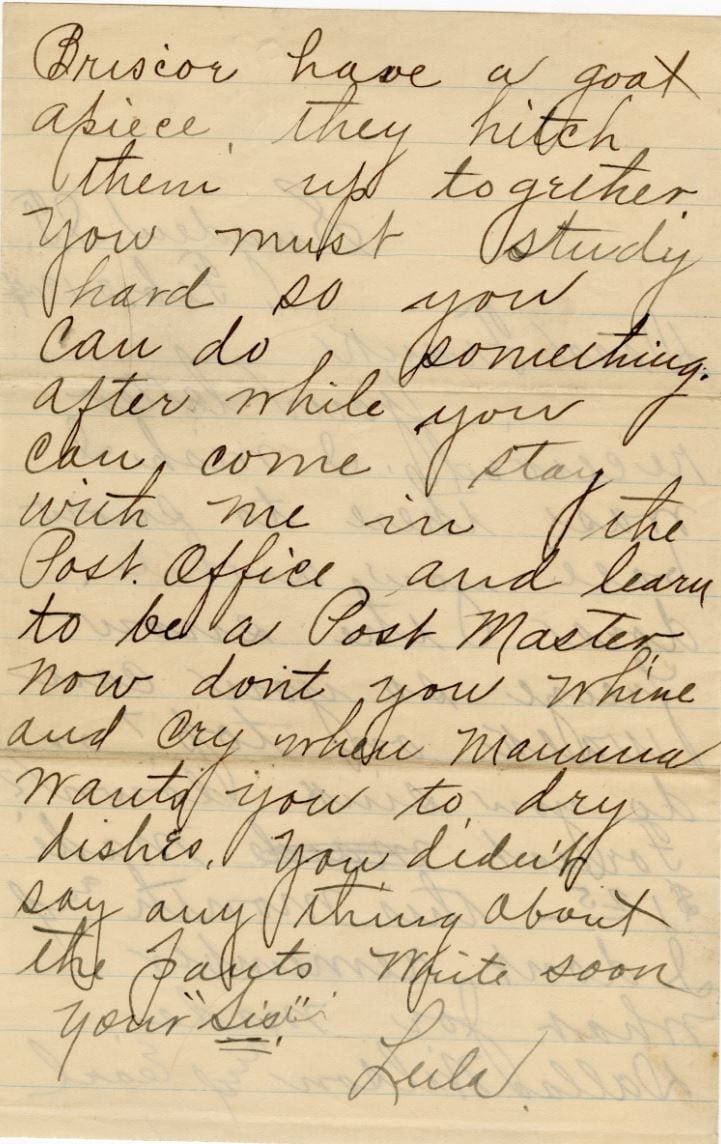 Briscor have a goat
apiece, they hitch
them up togrether.
You must study
hard so you
can do something.
after while you
can come stay
with me in the
Post. Office and learn
to be a Post Master,
now dont you whine
and cry when Mamma
wants you to dry
dishes. You diden't
say any thing about
the pants Write soon
your "Sis."
Lula.